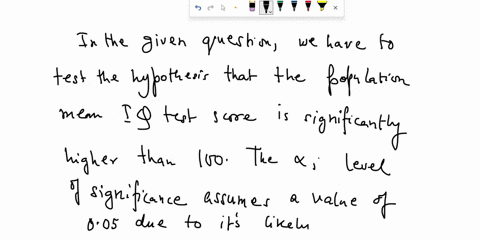 In the given question, we have to
test the hypothesis that the population
mean IQ test score is significantly
higher than 100. The α, level
of significance assumes a value of
0.05 due to it's likely